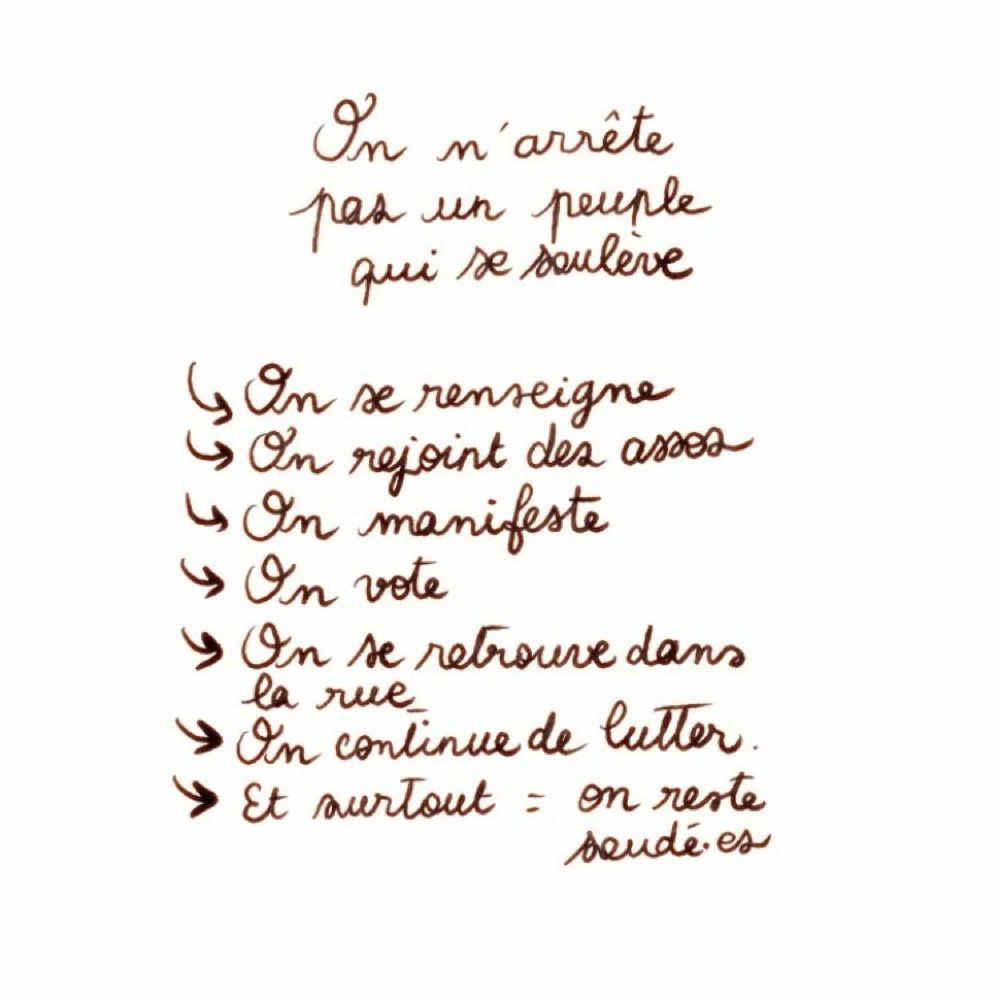 On n'arrête
pas un peuple
qui se soulève
↳ On se renseigne
↳ On rejoint des assos
↳ On manifeste
↳ On vote
↳ On se retrouve dans
la rue_
↳ On continue de lutter.
↳ Et surtout = on reste
soudé.es